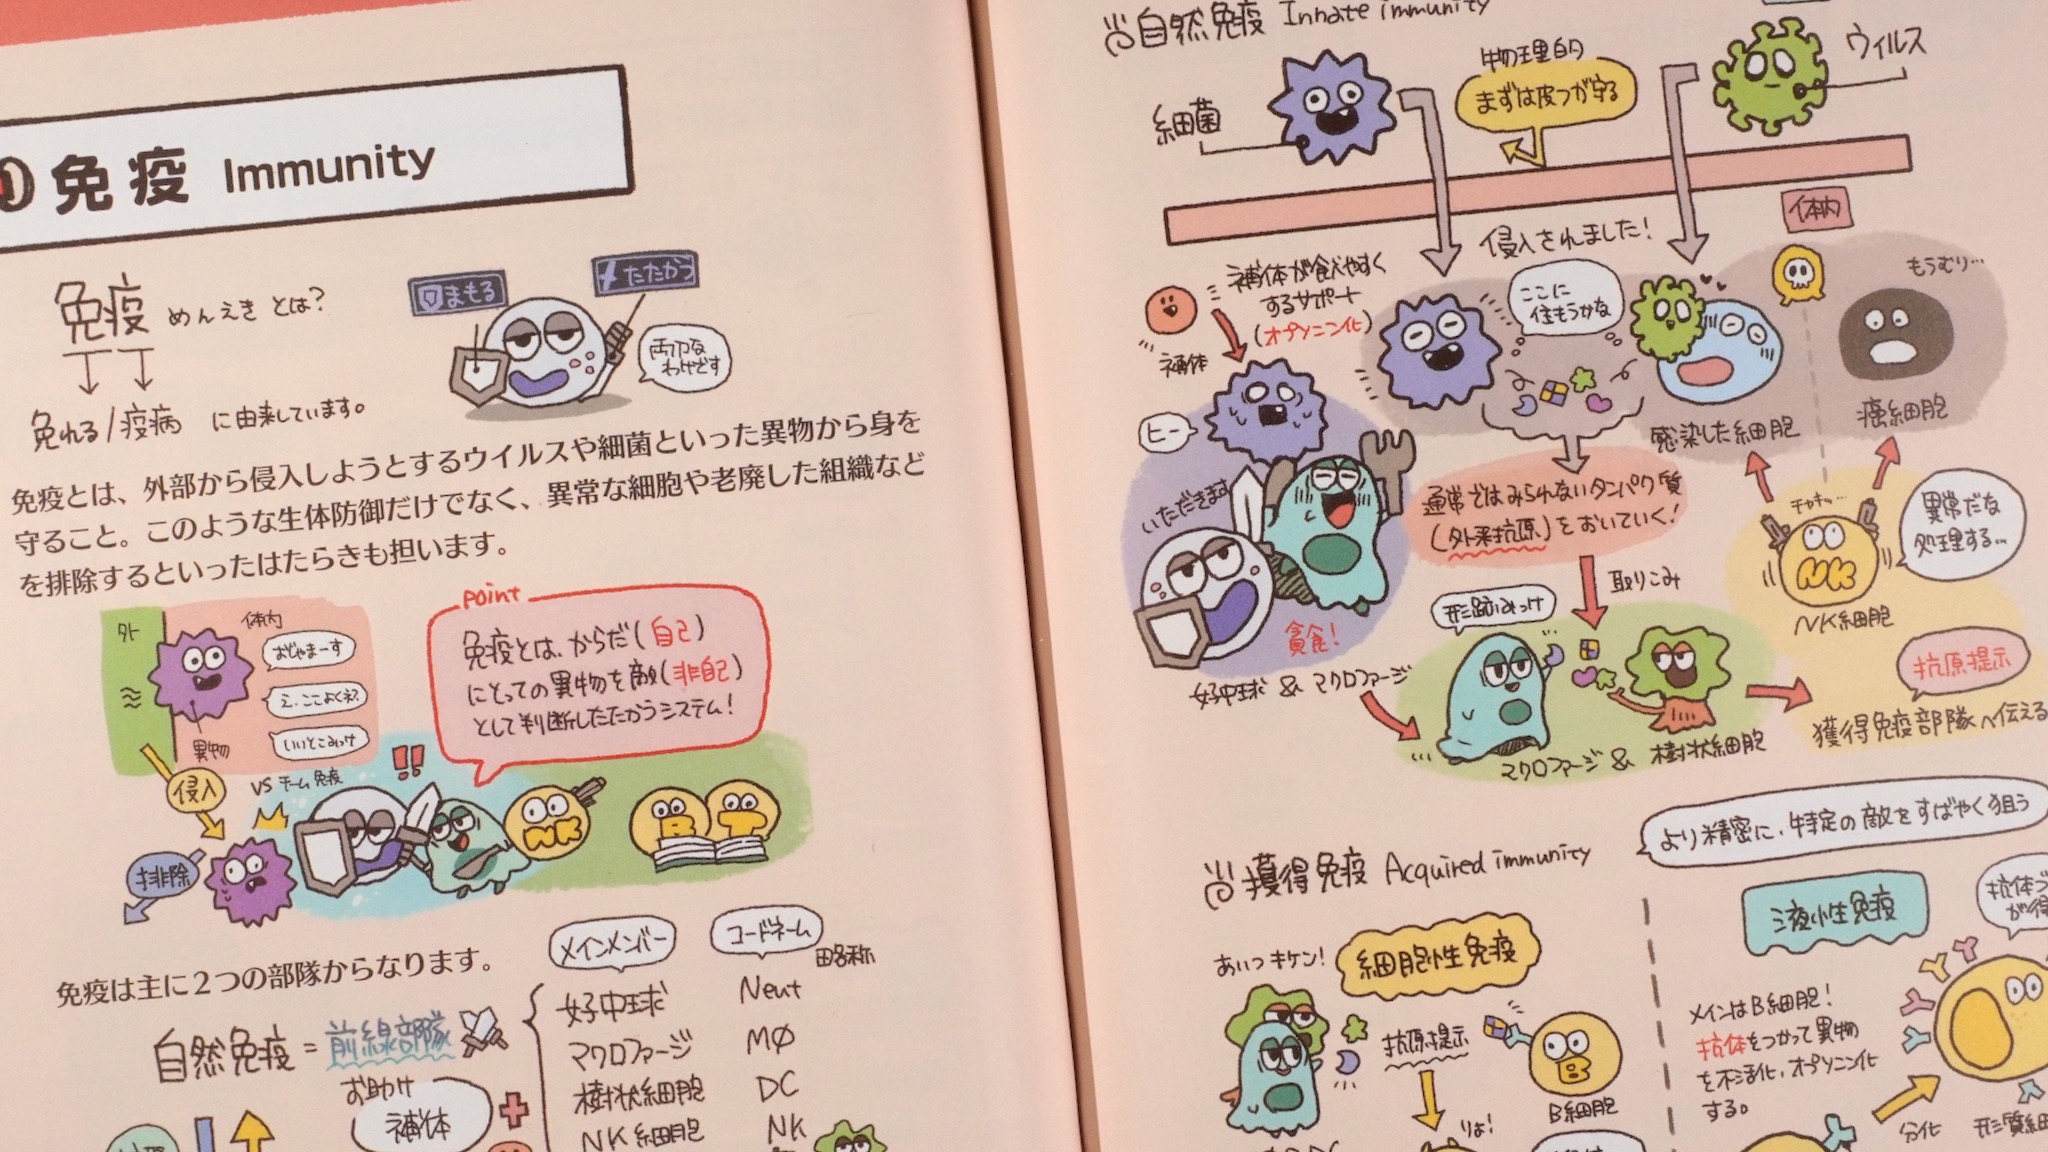 免疫 Immunity
免疫 めんえき とは?
まもる
たたかう
両刀な
わけです
免れる/疫病 に由来しています。
免疫とは、外部から侵入しようとするウイルスや細菌といった異物から身を
守ること。このような生体防御だけでなく、異常な細胞や老廃した組織など
を排除するといったはたらきも担います。
外
体内
おじゃまーす
え、ここよくね?
いいとこみっけ
異物
侵入
排除
VS チーム免疫
!!
NK
B
T
Point
免疫とは、からだ(自己)
にとっての異物を敵(非自己)
として判断したたかうシステム!
免疫は主に2つの部隊からなります。
自然免疫=前線部隊
お助け
補体
メインメンバー
コードネーム
略称
好中球 Neut
マクロファージ MΦ
樹状細胞 DC
NK細胞 NK
自然免疫 Innate immunity
細菌
物理的
まずは皮フが守る
ウィルス
体内
侵入されました!
補体が食べやすく
するサポート
(オプソニン化)
補体
ここに
住もうかな
もうむり…
感染した細胞
癌細胞
ヒー
いただきます
貪食!
好中球 & マクロファージ
通常ではみられないタンパク質
(外来抗原)をおいていく!
取りこみ
形跡みっけ
マクロファージ & 樹状細胞
チャキッ…
NK
NK細胞
異常だな
処理する…
抗原提示
獲得免疫部隊へ伝える
より精密に、特定の敵をすばやく狙う
獲得免疫 Acquired immunity
あいつキケン!
細胞性免疫
抗原提示
B
B細胞
りょ!
液性免疫
メインはB細胞!
抗体をつかって異物
を不活化、オプソニン化
する。
分化